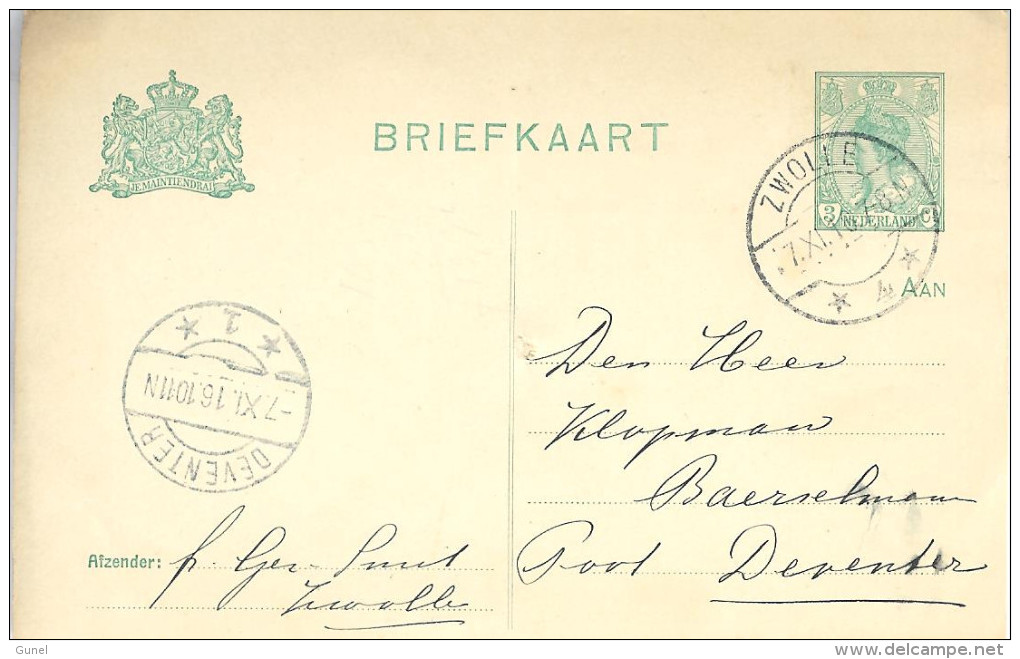 BRIEFKAART
JE MAINTIENDRAI
3 NEDERLAND Ct
ZWOLLE
7.XI.16 7-8 N
4
AAN
1
-7.XI.16.1011N
DEVENTER
Den Heer
Klopman
Baerselman
Poot Deventer
Afzender: f. Ger. Smit
Zwolle
Gunel
delcampe.net